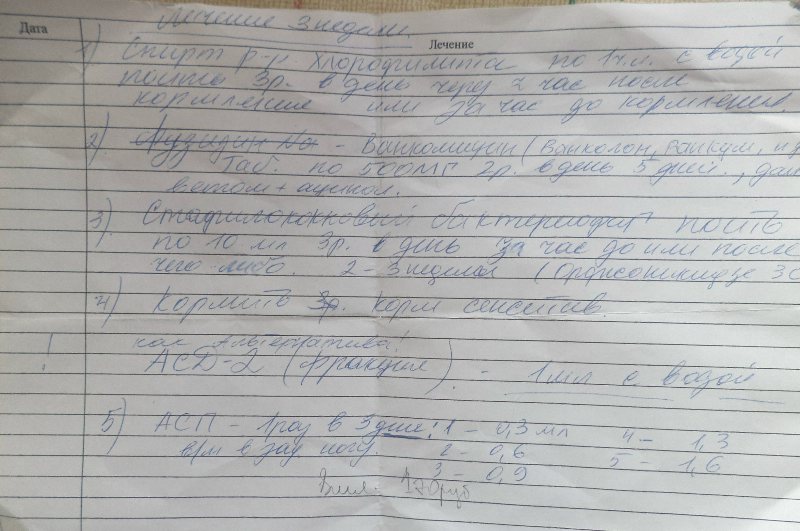 Лечение 3 недели.
Дата Лечение
1) Спирт р-р Хлорофилипта по 1 ч.л. с водой
поить 3р. в день через 1 час после
кормление или за час до кормления
2) - Ванкомицин (Ванколон,
Таб. по 500мг 2р. в день 5 дней.,
3) Стафилококковый бактериофаг поить
по 10 мл 3р. в день за час до или после
чего-либо. 2-3 недели (Орджоникидзе
4) Кормить 3р. корм сенситив.
как альтернатива!
! АСД-2 (фракция) - 1 мл с водой
5) АСП - 1 раз в 3 дня: 1 - 0,3 мл 4 - 1,3
в/м в зад. ногу. 2 - 0,6 5 - 1,6
3 - 0,9